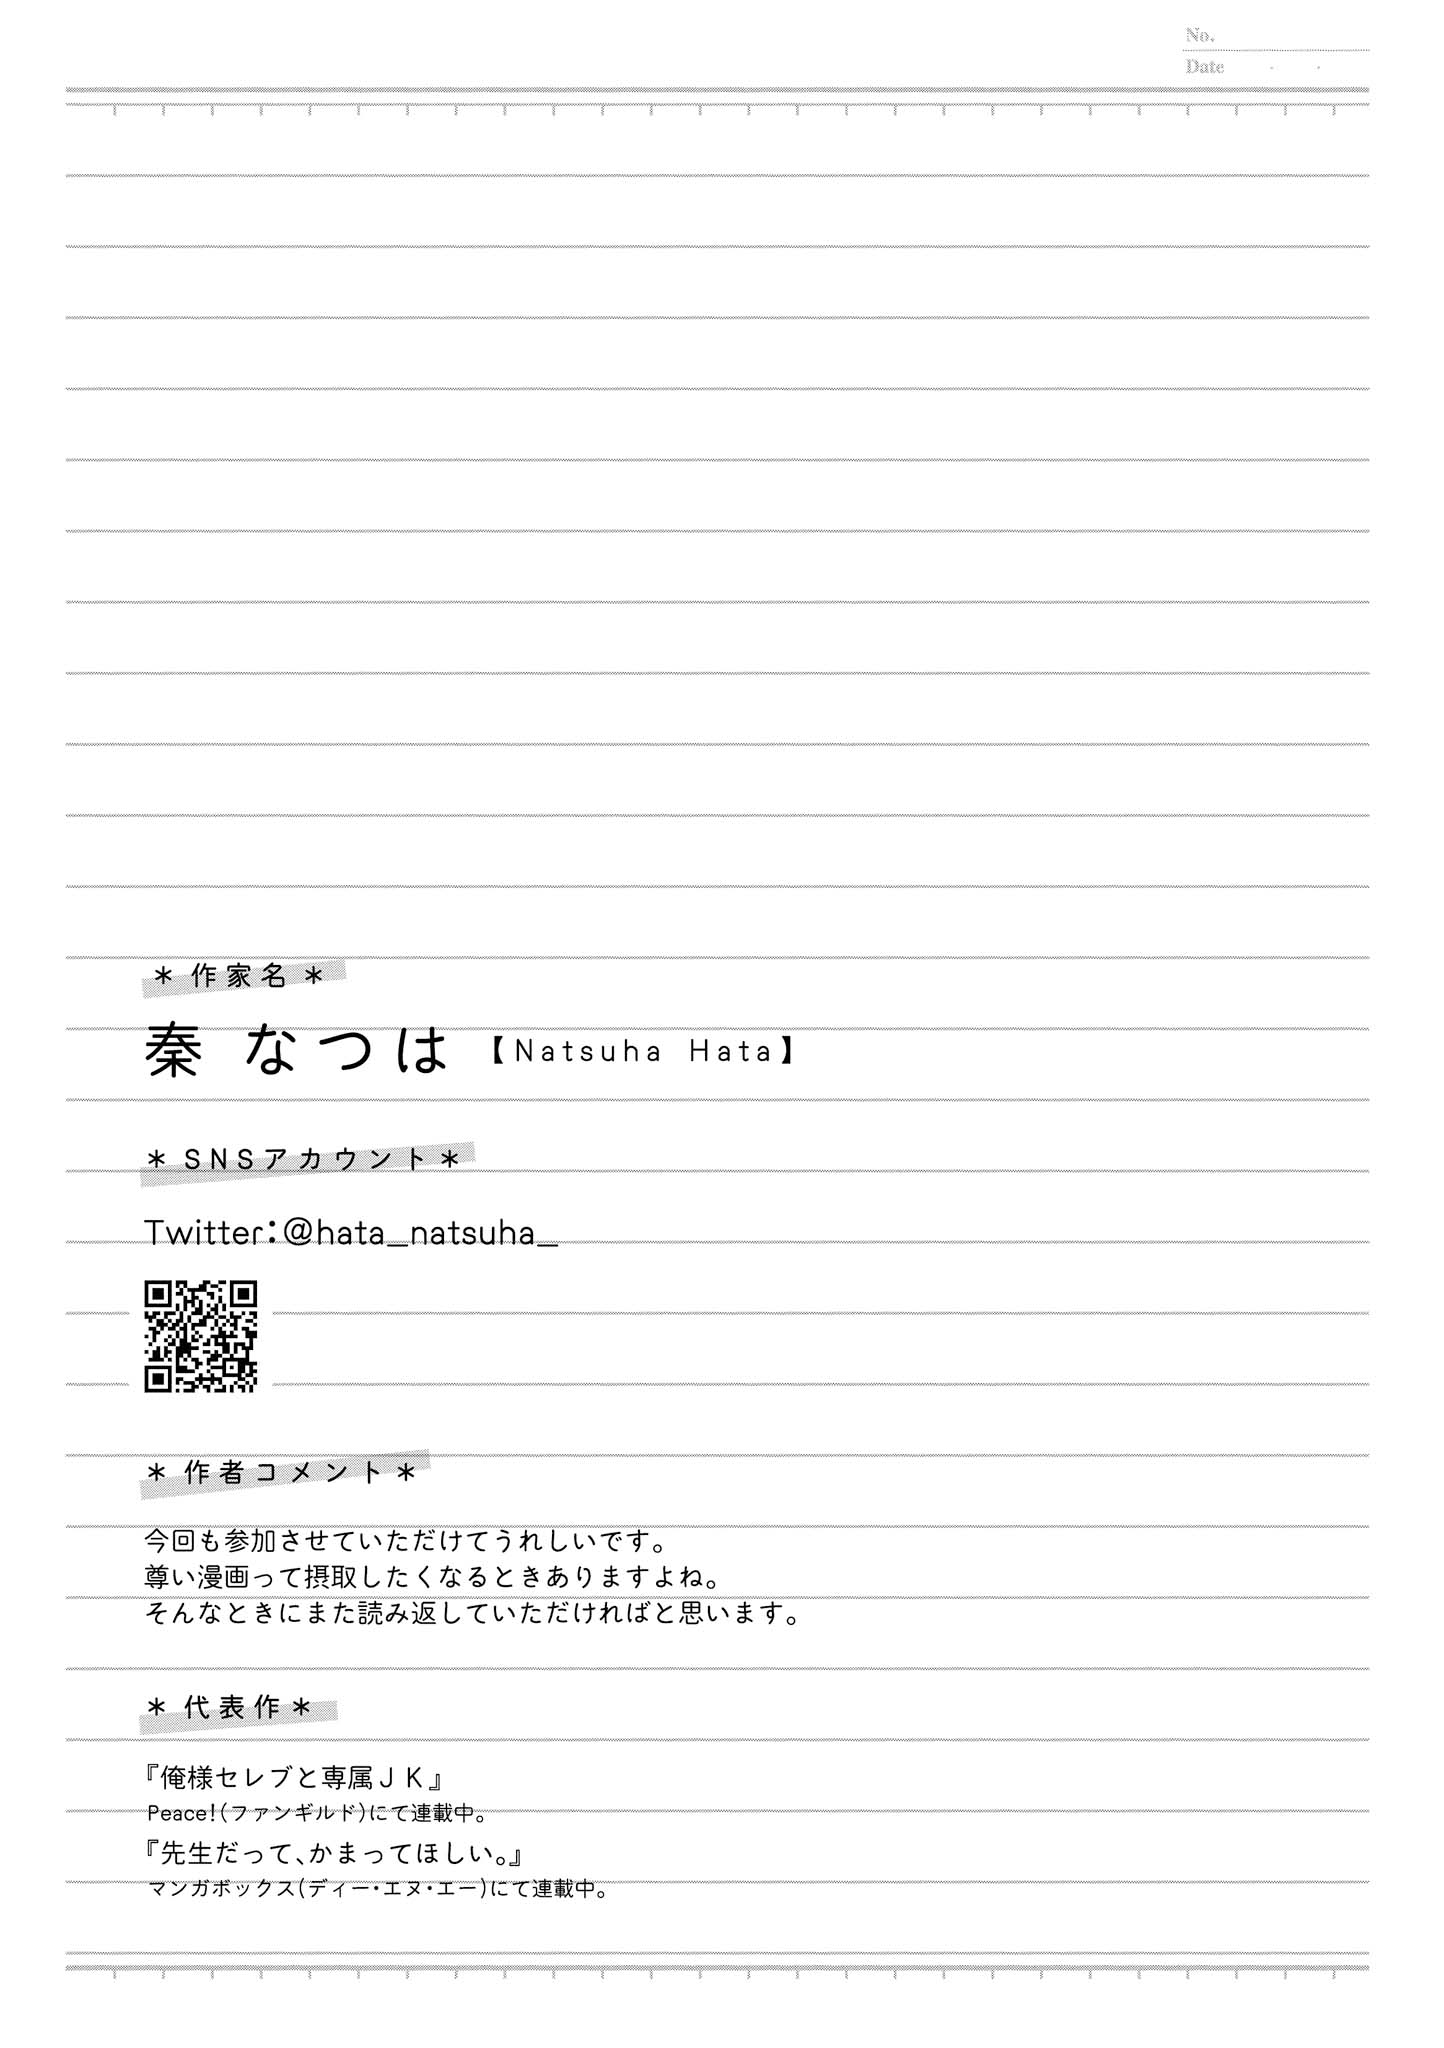 No.
Date
＊ 作家名 ＊
秦 なつは 【Natsuha Hata】
＊ SNSアカウント ＊
Twitter：@hata_natsuha_
＊ 作者コメント ＊
今回も参加させていただけてうれしいです。
尊い漫画って摂取したくなるときありますよね。
そんなときにまた読み返していただければと思います。
＊ 代表作 ＊
『俺様セレブと専属ＪＫ』
Peace!（ファンギルド）にて連載中。
『先生だって、かまってほしい。』
マンガボックス（ディー・エヌ・エー）にて連載中。